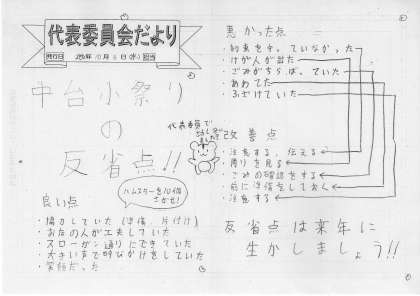 代表委員会だより
発行日 10月 日(水) 担当
中台小祭り
の
反省点!!
代表委員で
話し合い
ました!
ハムスターを10個
さがせ!
良い点
・協力していた(準備 片付け)
・お店の人が工夫していた
・スローガン通りにできていた
・大きい声で呼びかけをしていた
・笑顔だった
悪かった点
・約束を守っていなかった
・けが人が出た
・ごみがちらばっていた
・あわてた
・ふざけていた
改善点
・注意する、伝える
・周りを見る
・ごみの確認をする
・前に準備をしておく
・注意する
反省点は来年に
生かしましょう!!